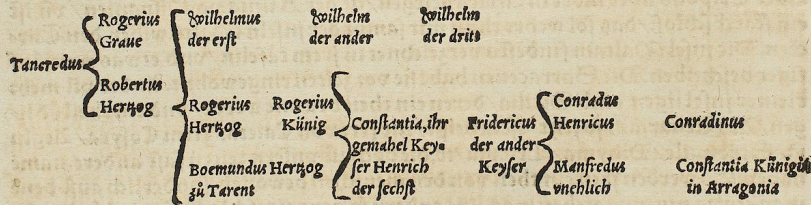 Tancredus
Rogerius
Graue
Robertus
Hertzog
Wilhelmus
der erst
Wilhelm
der ander
Wilhelm
der drits
Rogerius
Hertzog
Rogerius
Künig
Boemundus Hertzog
zů Tarent
Constantia, ihr
gemahel Key-
ser Henrich
der sechst
Fridericus
der ander
Keyser
Conradus
Henricus
Manfredus
vnehlich
Conradinus
Constantia Künigin
in Arragonia